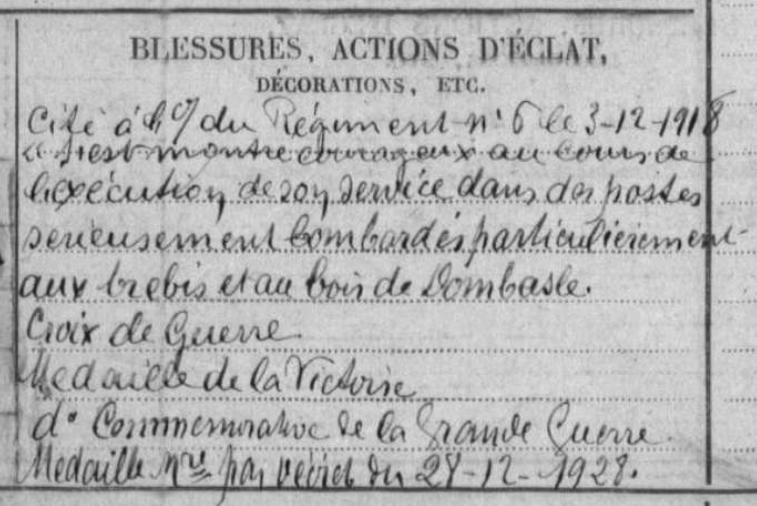 BLESSURES, ACTIONS D'ÉCLAT,
DÉCORATIONS, ETC.
Cité à l'o/ du Régiment n° 6 le 3-12-1918
" S'est montré courageux au cours de
l'exécution de son service dans des postes
serieusement bombardés particulièrement
aux brebis et au bois de Dombasle.
Croix de Guerre
Medaille de la Victoire
d° Commemorative de la Grande Guerre
Medaille Mre par décret du 28-12-1928.